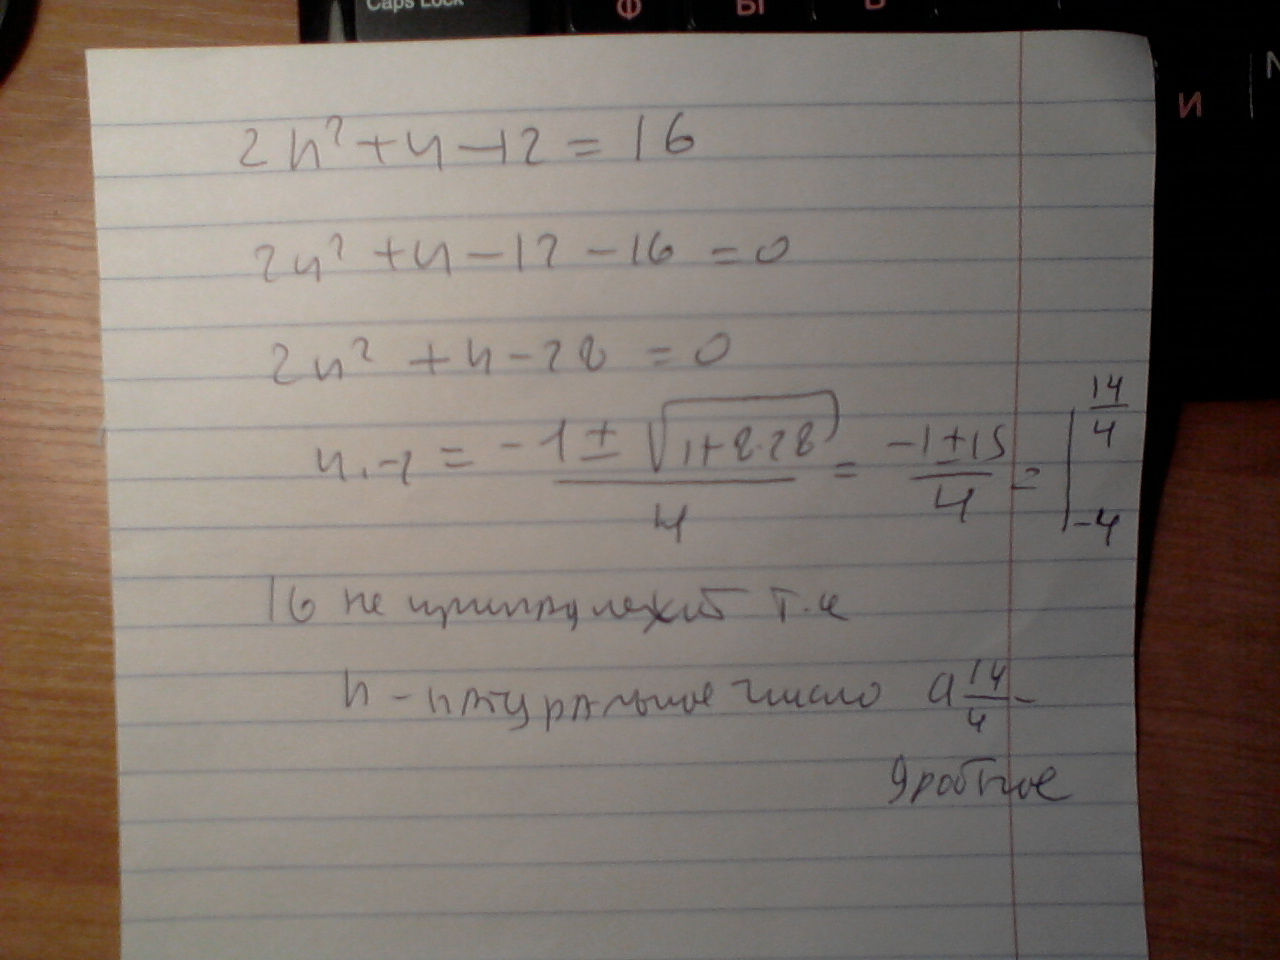 Caps Lock
Ф Ы В
И
2n²+n-12=16
2n²+n-12-16=0
2n²+n-28=0
n₁.₂ = -1±√1+8·28 / 4 = -1±15 / 4 = 14/4 -4
16 не принадлежит т.к
n - натуральное число а 14/4 -
дробное